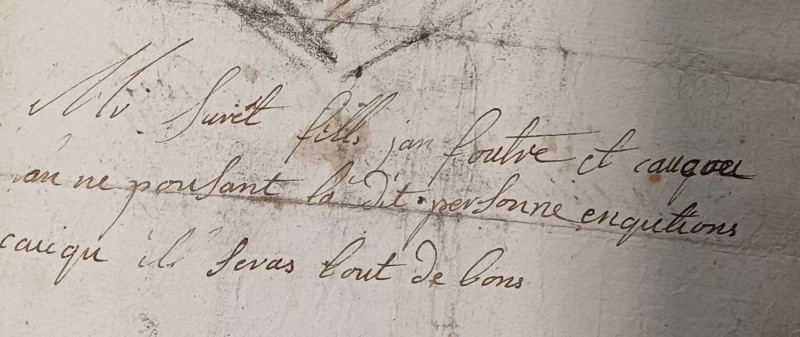 Mr Suret fills jan foutre et cauquei
an ne pousant la dit personne enqutions
cauqu il seras bout de bons